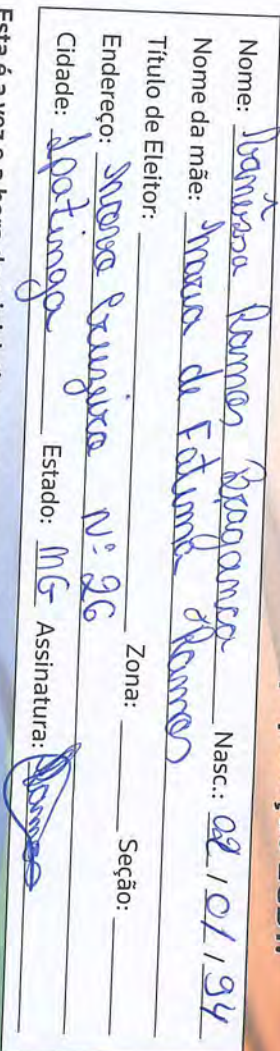 Nome: Vanessa Ramos Bragança Nasc.: 02/01/94
Nome da mãe: Maria de Fatima Ramos
Título de Eleitor: Zona: Seção:
Endereço: Novo Cruzeiro Nº 26
Cidade: Ipatinga Estado: MG Assinatura: Ramos
Esta é a vez e a hora